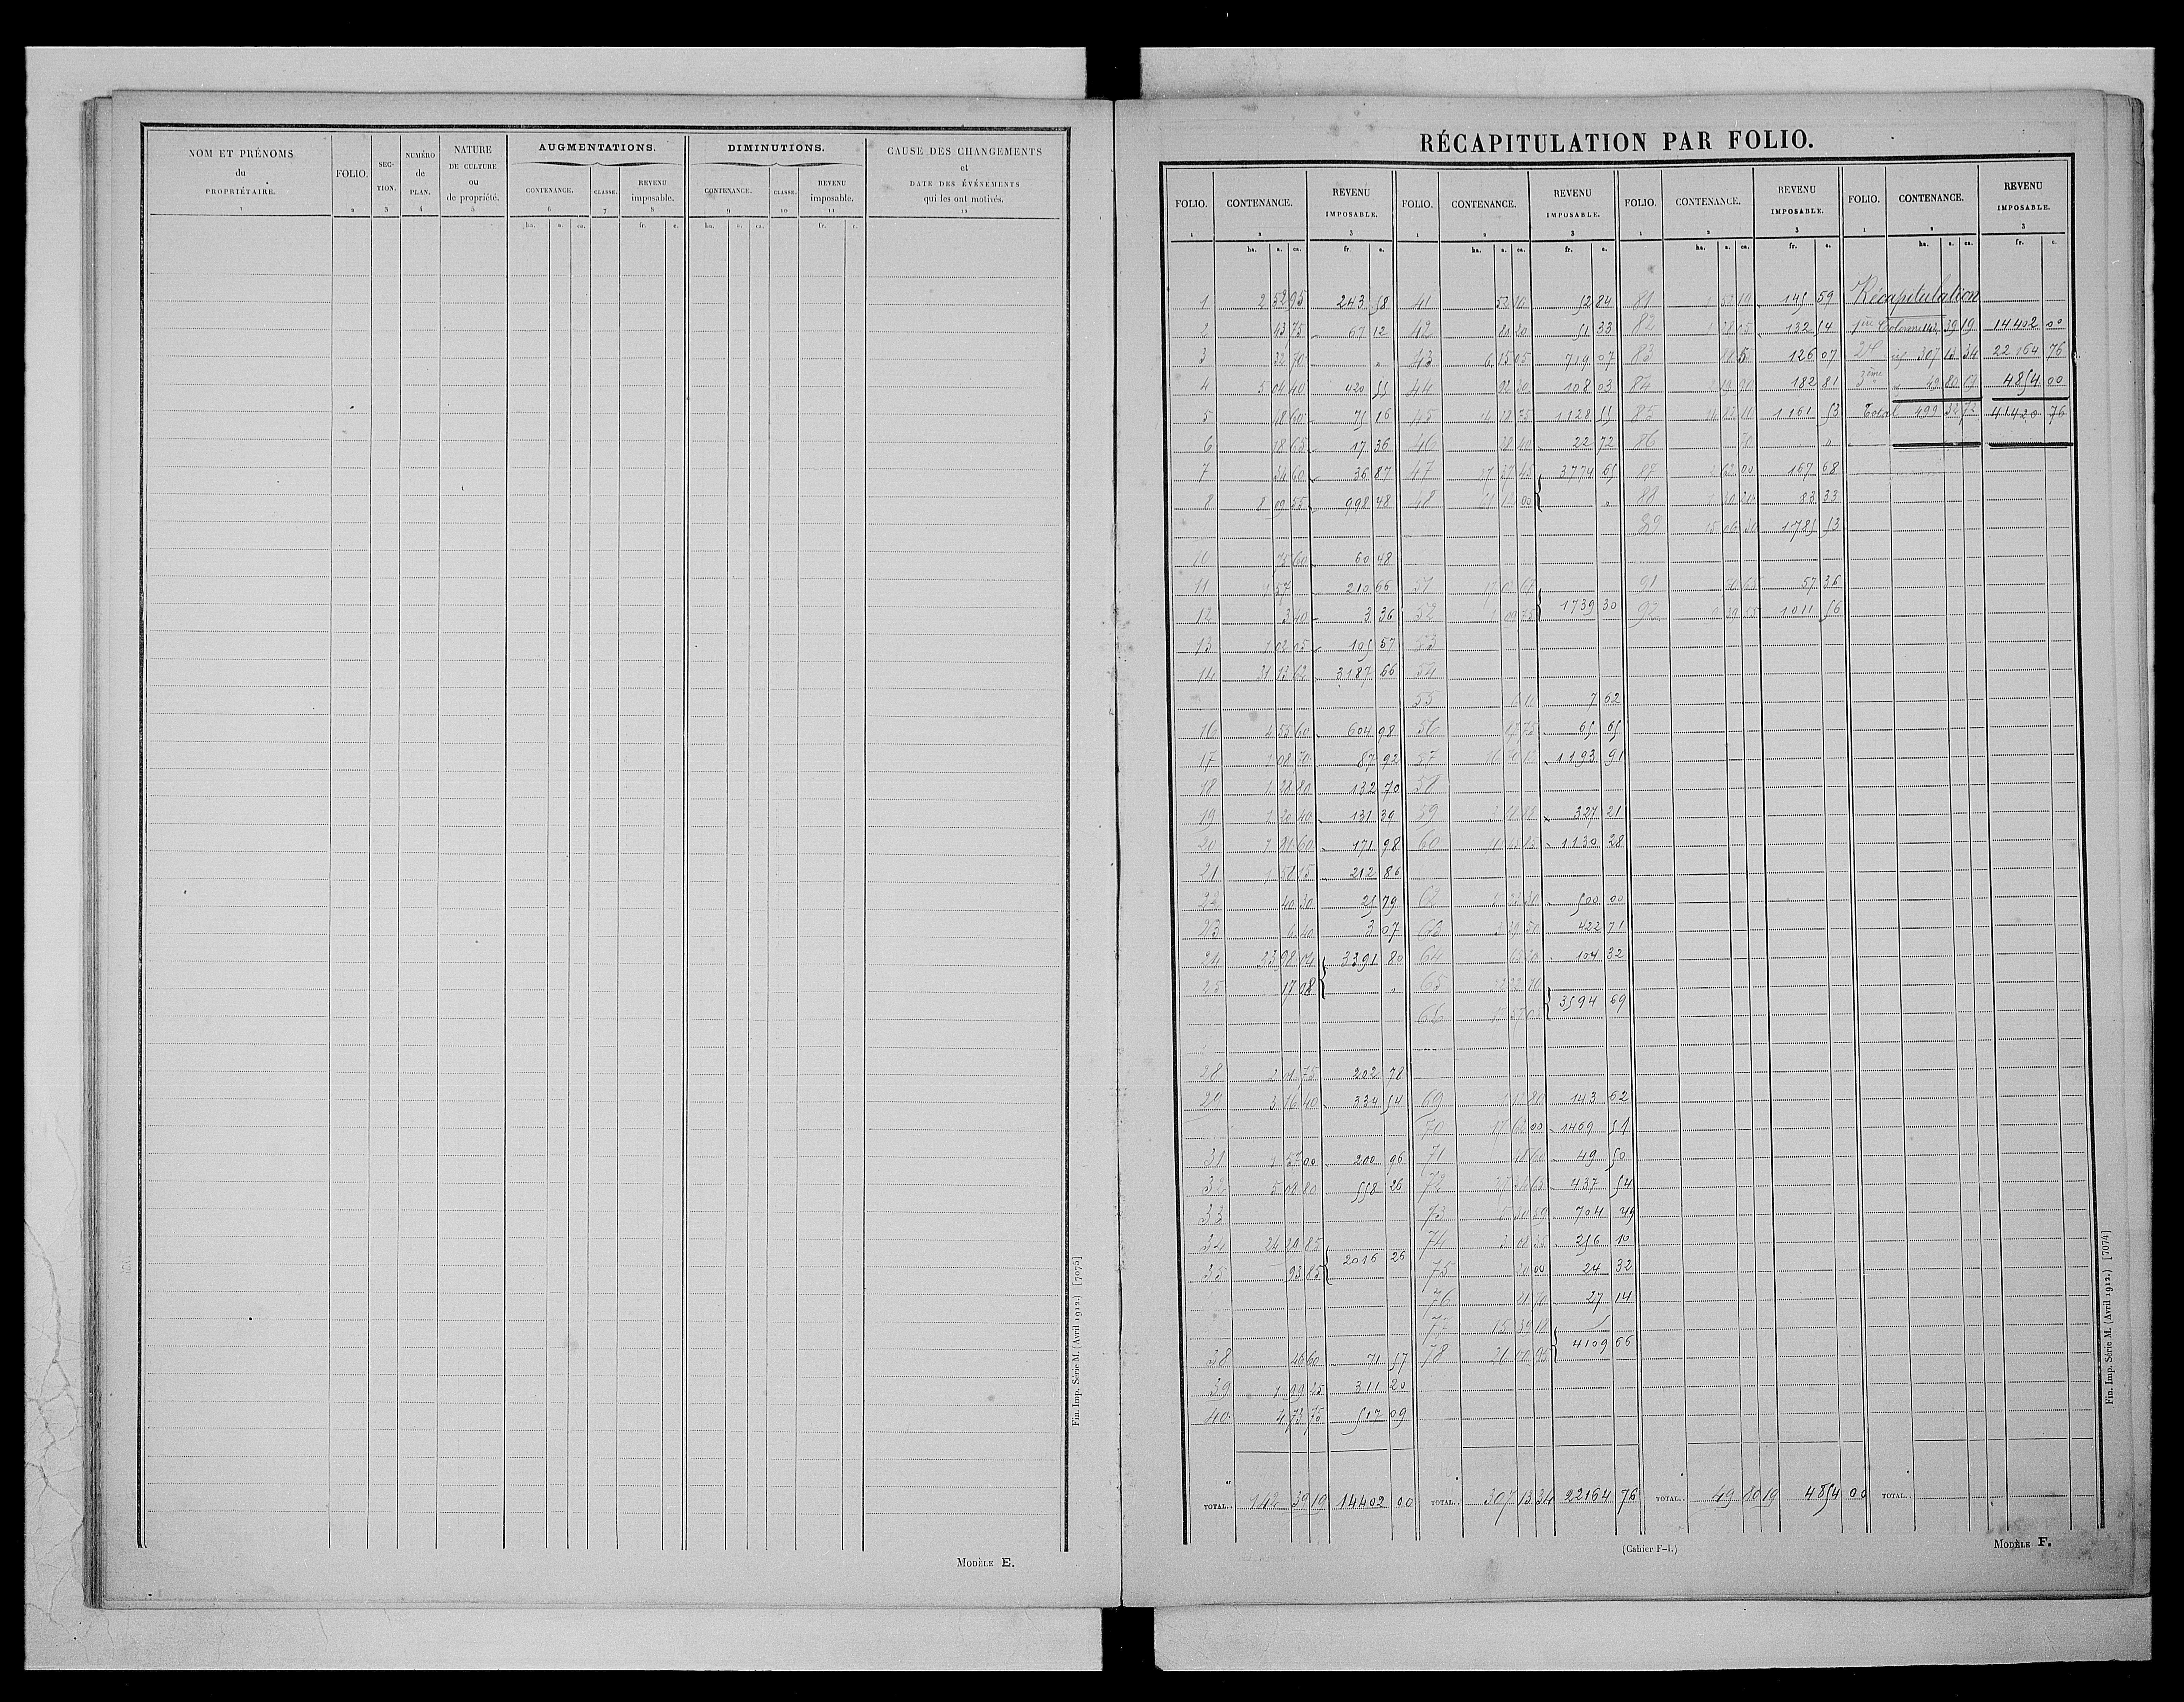 NOM ET PRÉNOMS
du
PROPRIÉTAIRE.
1
FOLIO.
2
SEC-
TION.
3
NUMÉRO
de
PLAN.
4
NATURE
DE CULTURE
ou
de propriété.
5
AUGMENTATIONS.
CONTENANCE.
6
CLASSE.
7
REVENU
imposable.
8
DIMINUTIONS.
CONTENANCE.
9
CLASSE.
10
REVENU
imposable.
11
CAUSE DES CHANGEMENTS
et
DATE DES ÉVÉNEMENTS
qui les ont motivés.
12
ha. a. ca. fr. c. ha. a. ca. fr. c.
Fin. Imp. Série M. (Avril 1912.) [7075]
MODÈLE E.
RÉCAPITULATION PAR FOLIO.
FOLIO. CONTENANCE. REVENU IMPOSABLE. FOLIO. CONTENANCE. REVENU IMPOSABLE. FOLIO. CONTENANCE. REVENU IMPOSABLE. FOLIO. CONTENANCE. REVENU IMPOSABLE.
1 2 3 1 2 3 1 2 3 1 2 3
ha. a. ca. fr. c. ha. a. ca. fr. c. ha. a. ca. fr. c. ha. a. ca. fr. c.
1 2 52 95 243 58 41 52 10 52 84 81 145 59 Récapitulation
2 43 75 67 12 42 80 20 51 33 82 132 54 1ère Colonne 142 39 19 14402 00
3 32 70 " 43 6 15 05 719 07 83 126 07 2e id 307 13 34 22164 76
4 5 04 40 420 55 44 108 03 84 182 81 3ème " 49 80 19 4854 00
5 98 60 75 16 45 1128 55 85 1161 53 Total 499 32 72 41420 76
6 78 65 17 36 46 28 40 22 72 86 70 "
7 34 60 36 87 47 3774 65 87 2 62 00 167 68
8 8 09 55 998 48 48 " 88 83 33
89 15 06 30 1785 53
10 75 60 60 48
11 210 66 51 91 57 36
12 3 40 3 36 52 1739 30 92 1011 56
13 1 02 05 105 57 53
14 31 13 62 3187 66 54
55 7 62
16 4 55 60 604 98 56 65 65
17 1 08 70 87 92 57 1193 91
18 1 28 80 132 70 58
19 1 20 40 131 39 59 327 21
20 1 81 60 171 98 60 1130 28
21 1 51 15 212 86
22 40 30 25 79 62 500 00
23 6 40 3 07 63 422 71
24 33 98 04 3391 80 64 104 32
25 17 08 " 65
66 3594 69
28 2 01 75 202 78
29 3 16 40 334 54 69 143 62
70 1469 51
31 1 57 00 200 96 71 49 50
32 5 08 80 558 26 72 437 54
33 73 704 49
34 24 29 85 74 256 10
35 93 85 2016 26 75 20 00 24 32
76 21 70 27 14
77 15 39 18
38 46 60 71 57 78 4109 66
39 1 99 25 311 20
40 4 73 75 517 09
TOTAL.. 142 39 19 14402 00 TOTAL.. 307 13 34 22164 76 TOTAL.. 49 80 19 4854 00 TOTAL..
(Cahier F-1.)
MODÈLE F.
Fin. Imp. Série M. (Avril 1912.) [7074]